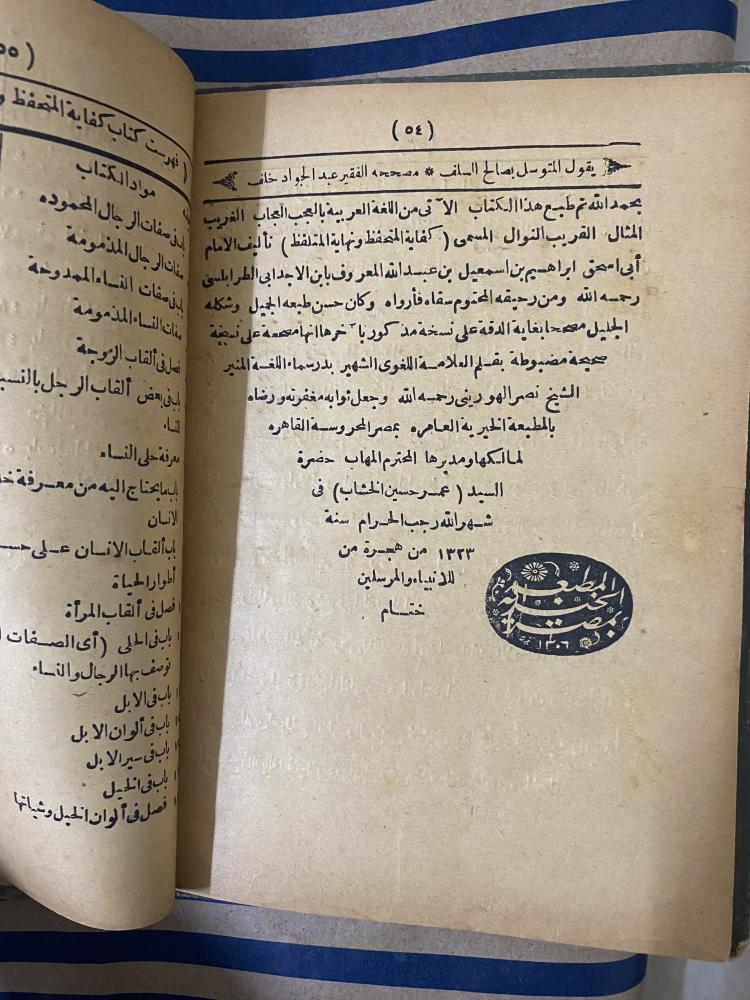 ( ٥٤ )
يقول المتوسل بصالح السلف * مصححه الفقير عبد الجواد خلف
بحمد الله تم طبع هذا الكتاب الآتى من اللغة العربية بالعجب العجاب الغريب
المثال القريب النوال المسمى ( كفاية المتحفظ ونهاية المتلفظ ) تأليف الامام
أبى اسحق ابراهيم بن اسمعيل بن عبد الله المعروف بابن الاجدابى الطرابلسى
رحمه الله ومن رحيقه المختوم سقاه فأرواه وكان حسن طبعه الجميل وشكله
الجليل مصححا بغاية الدقة على نسخة مذكور بآخرها انها مصححة على نسخة
صحيحة مضبوطة بقلم العلامة اللغوى الشهير بدر سماء اللغة المنير
الشيخ نصر الهورينى رحمه الله وجعل ثوابه مغفرته ورضاه
بالمطبعة الخيرية العامره بمصر المحروسة القاهره
لمالكها ومديرها المحترم المهاب حضرة
السيد ( عمر حسين الخشاب ) فى
شهر الله رجب الحرام سنة
١٣٢٣ من هجرة من
للانبياء والمرسلين
ختام
المطبعة
الخيرية
بمصر
١٣٠٦
( ٥٥
( فهرست كتاب كفاية المتحفظ و
مواد الكتاب
باب فى صفات الرجال المحموده
صفات الرجال المذمومة
باب فى صفات النساء الممدوحة
صفات النساء المذمومة
فصل فى ألقاب الزوجة
باب فى بعض ألقاب الرجل
النساء
معرفة حلى النساء
باب ما يحتاج اليه من معرفة
الانسان
باب ألقاب الانسان على
أطوار الحياة
فصل فى ألقاب المرأة
باب فى الحلى ( أى الصفات
توصف بها الرجال والنساء
باب فى الابل
باب فى ألوان الابل
باب فى سير الابل
باب فى الخيل
فصل فى ألوان الخيل وشياتها